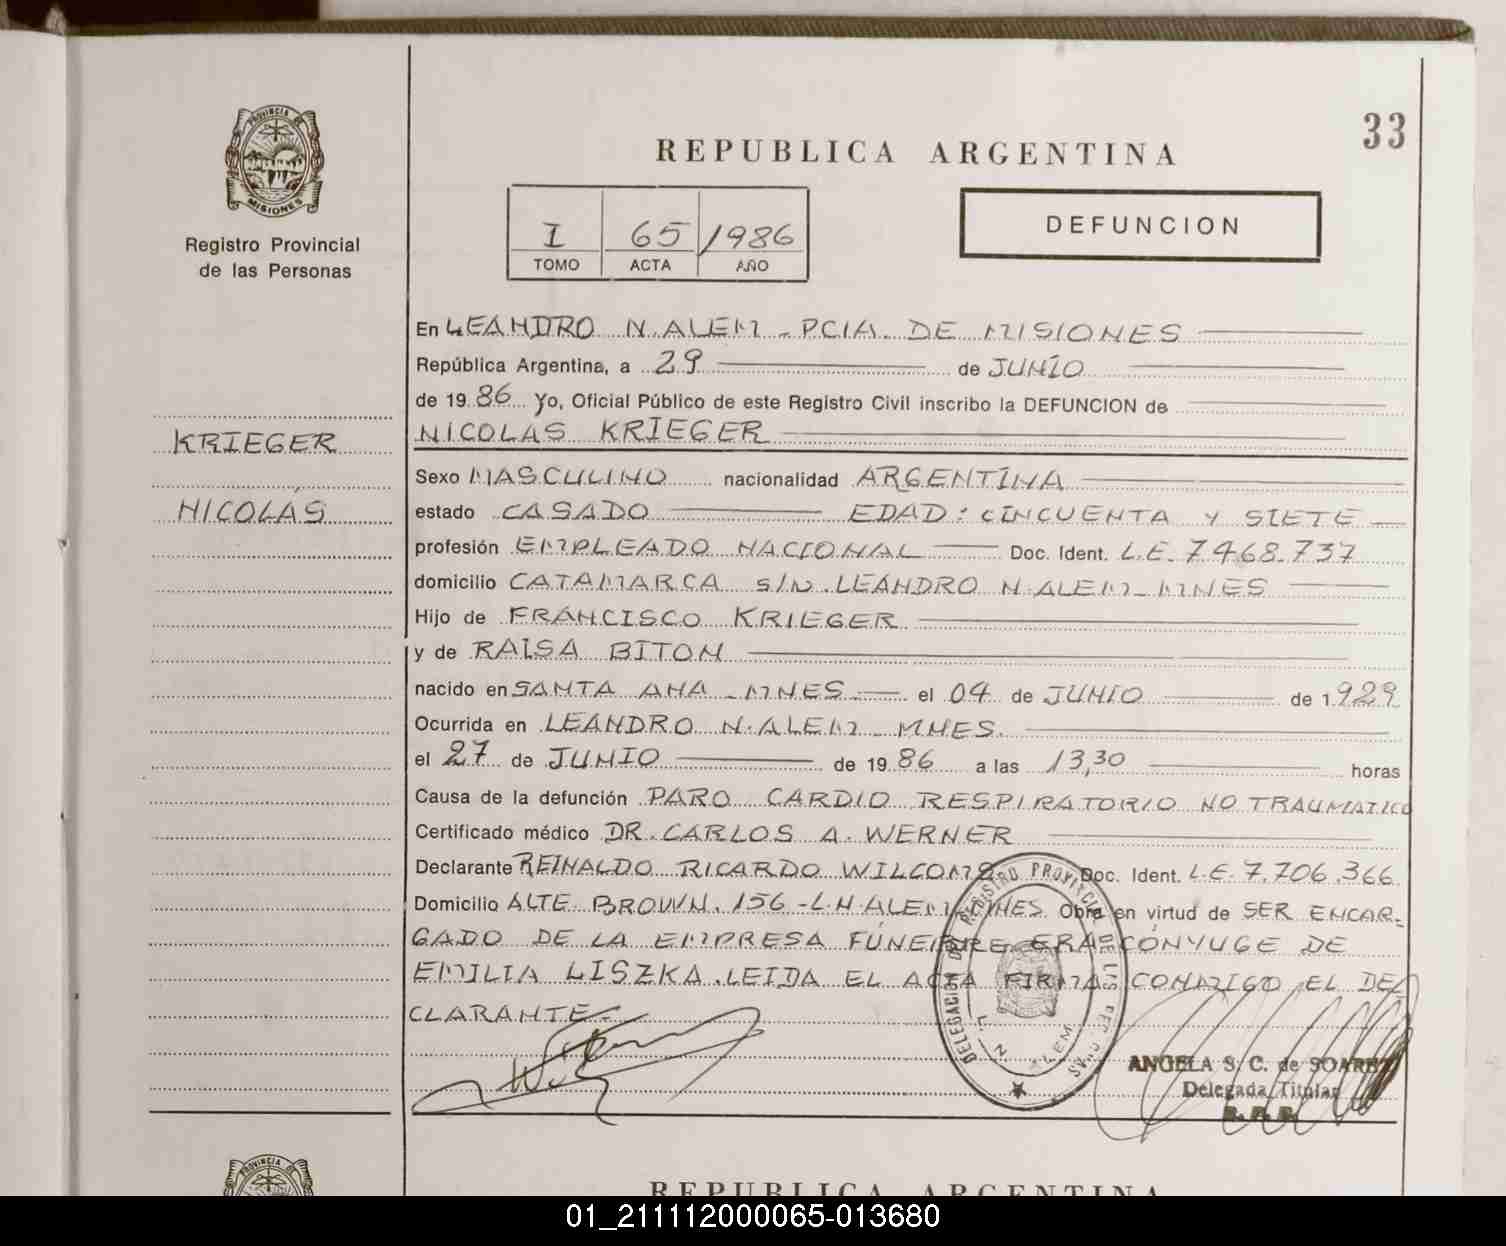 33
REPUBLICA ARGENTINA
PROVINCIA DE
MISIONES
Registro Provincial
de las Personas
I 65 1986
TOMO ACTA AÑO
DEFUNCION
KRIEGER
NICOLÁS
En LEANDRO N. ALEM - PCIA. DE MISIONES
República Argentina, a 29 de JUNIO
de 19 86 Yo, Oficial Público de este Registro Civil inscribo la DEFUNCION de
NICOLAS KRIEGER
Sexo MASCULINO nacionalidad ARGENTINA
estado CASADO EDAD: CINCUENTA Y SIETE
profesión EMPLEADO NACIONAL Doc. Ident. L.E. 7.468.737
domicilio CATAMARCA S/N. LEANDRO N. ALEM - MNES
Hijo de FRANCISCO KRIEGER
y de RAISA BITON
nacido en SANTA ANA - MNES. el 04 de JUNIO de 1929
Ocurrida en LEANDRO N. ALEM - MNES.
el 27 de JUNIO de 19 86 a las 13,30 horas
Causa de la defunción PARO CARDIO RESPIRATORIO NO TRAUMATICO
Certificado médico DR. CARLOS A. WERNER
Declarante REINALDO RICARDO Doc. Ident. L.E. 7.706.366
Domicilio ALTE. BROWN. 156 - L.N. ALEM MNES. Obra en virtud de SER ENCAR-
GADO DE LA EMPRESA FÚNEBRE. ERA CÓNYUGE DE
EMILIA LISZKA. LEIDA EL ACTA FIRMA CONMIGO EL DE
CLARANTE.-
DELEGACION DEL REGISTRO PROVINCIAL DE LAS PERSONAS
L. N. ALEM
ANGELA S. C. de SOAREZ
Delegada Titular
R. P. P.
PROVINCIA DE
REPUBLICA ARGENTINA
01_211112000065-013680